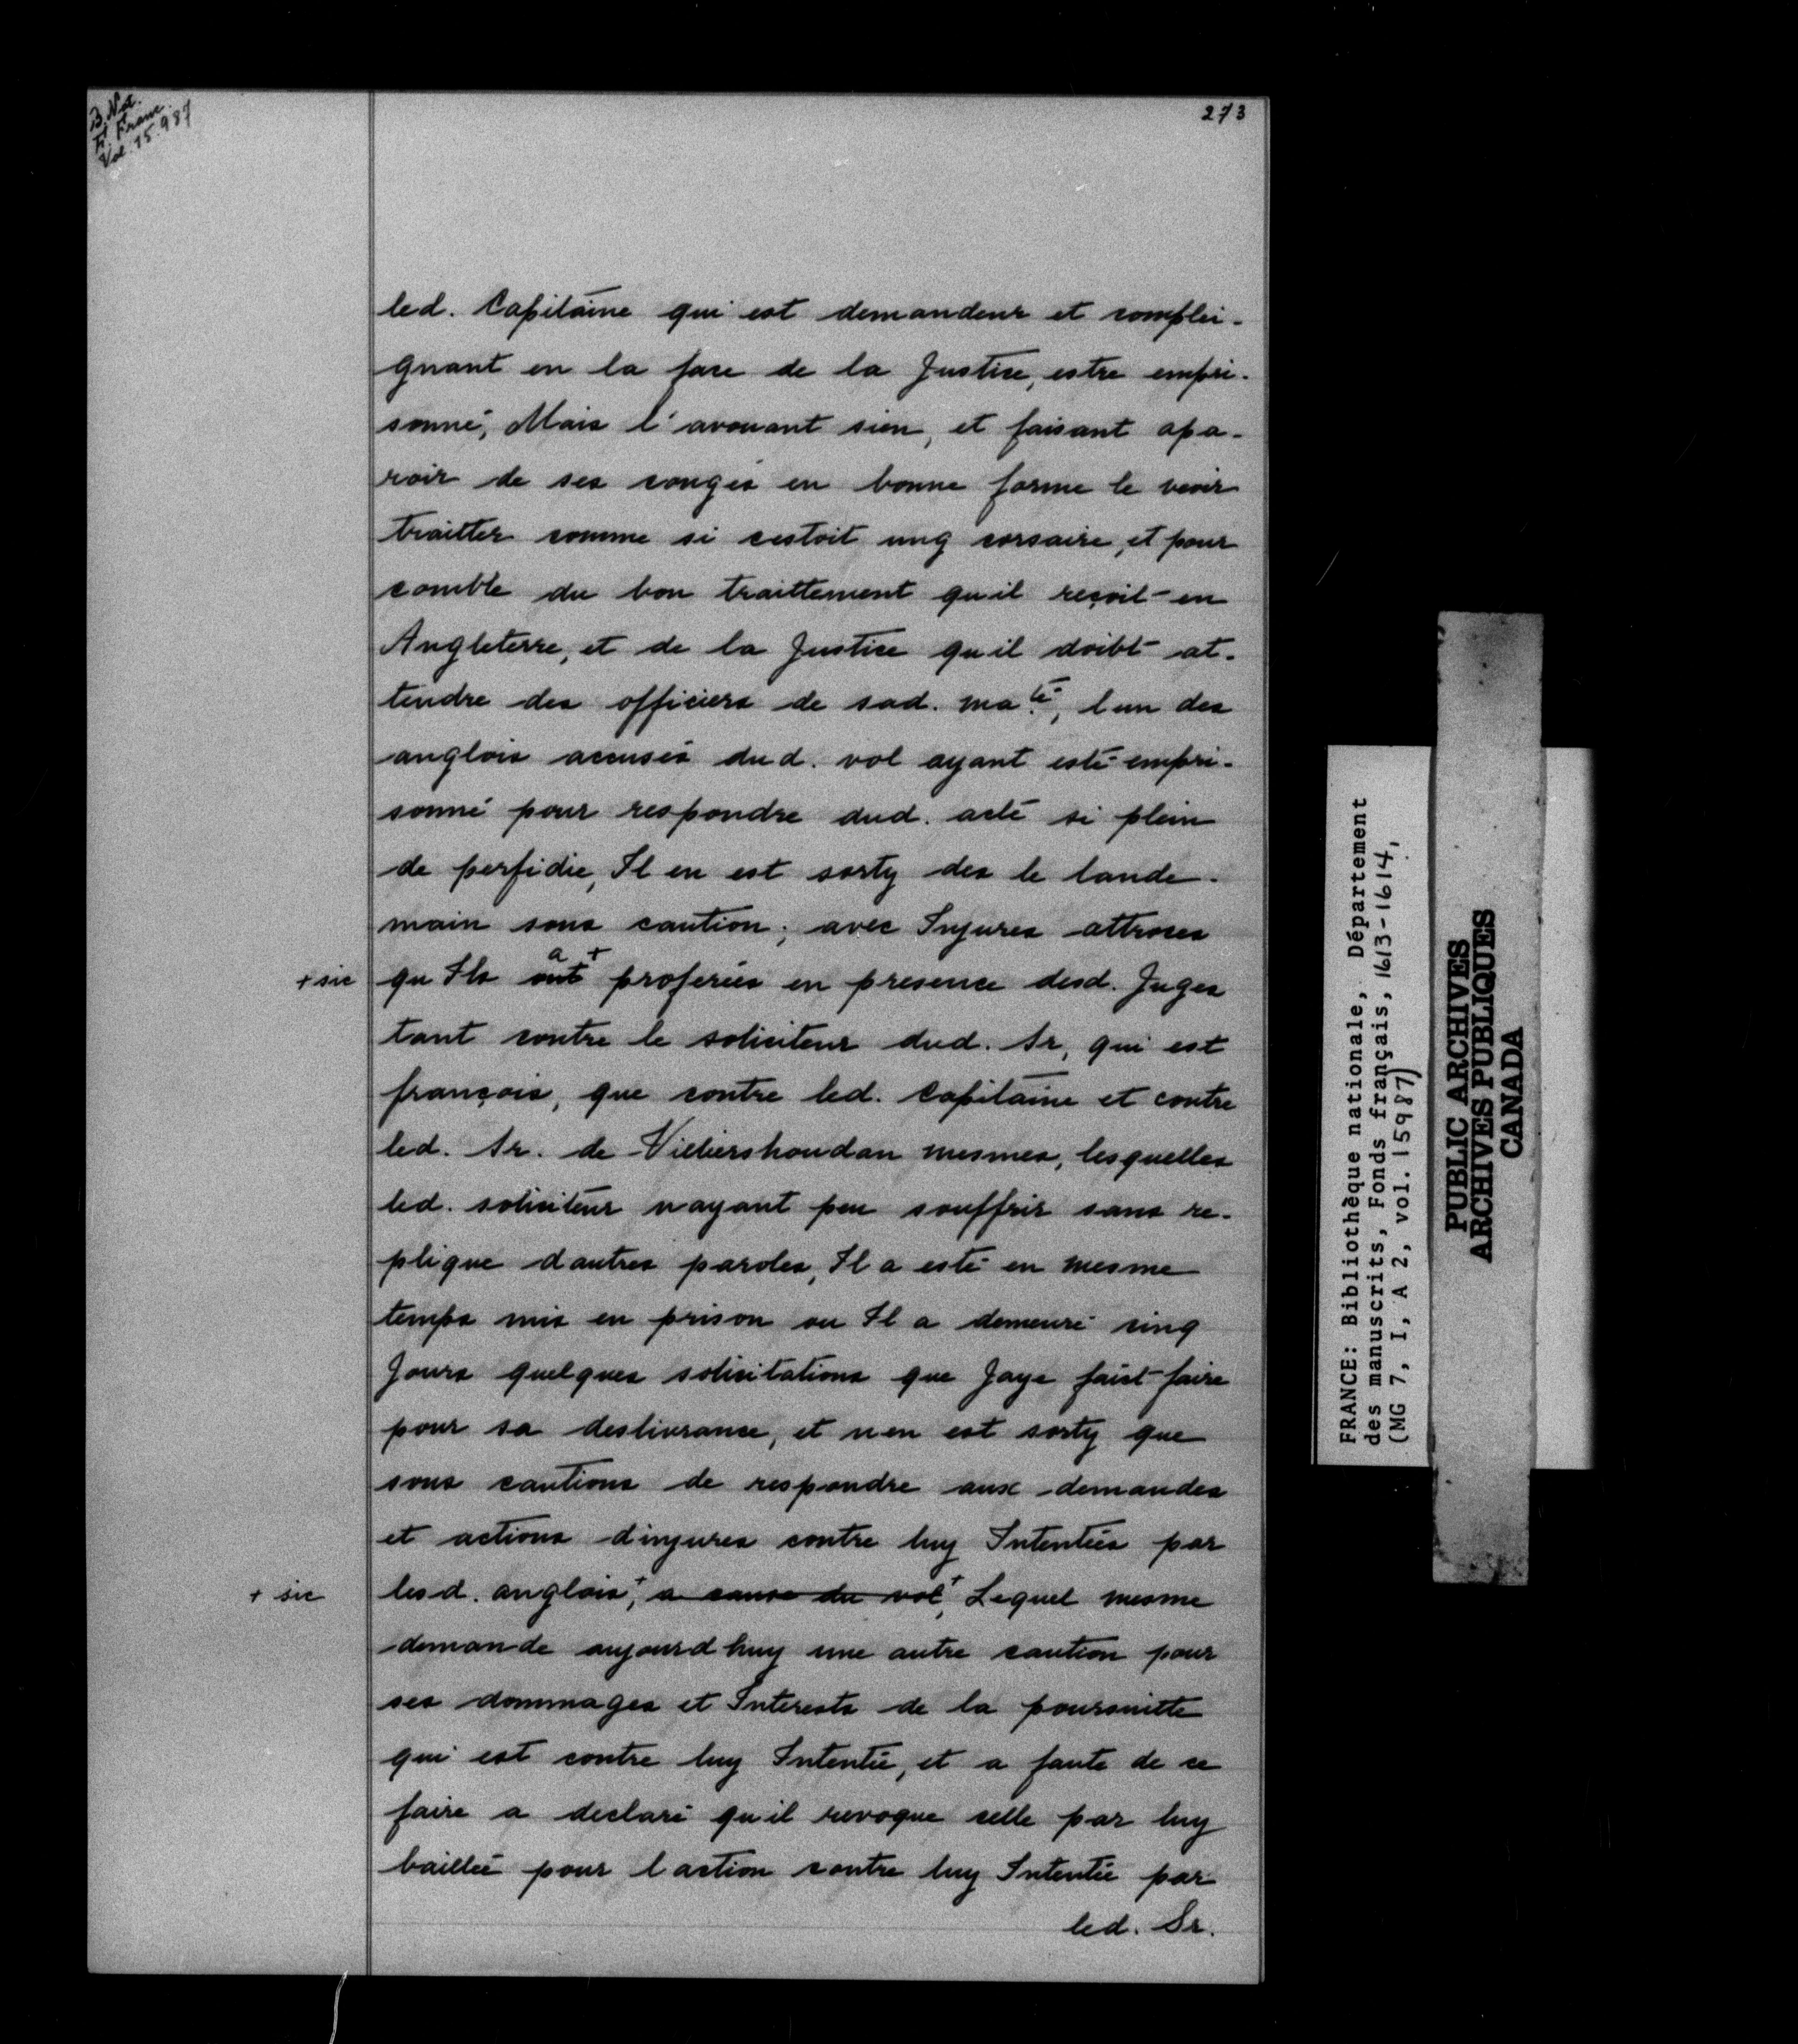 B. Nat.
Ft. Franc.
Vol. 15.987
273
led. Capitaine qui est demandeur et complei-
gnant en la face de la Justice, estre empri-
sonné, Mais l'avouant sien, et faisant apa-
roir de ses congés en bonne forme le veoir
traitter comme si cestoit ung corsaire, et pour
comble du bon traittement qu'il reçoit en
Angleterre, et de la Justice qu'il doibt at-
tendre des officiers de sad. ma.té, l'un des
anglois accusés dud. vol ayant esté empri-
sonné pour respondre dud. acte si plein
de perfidie, Il en est sorty des le lande-
main sous caution; avec Injures attroces
+ sic qu Ils ont a + proferées en presence desd. Juges
tant contre le soliciteur dud. Sr, qui est
françois, que contre led. Capitaine et contre
led. Sr. de Villiershoudan mesmes, lesquelles
led. soliciteur nayant peu souffrir sans re-
plique dautres paroles, Il a esté en mesme
temps mis en prison ou Il a demeuré cinq
Jours quelques solicitations que Jaye faict faire
pour sa deslivrance, et nen est sorty que
sous cautions de respondre aux demandes
et actions dinjures contre luy Intentées par
+ sic lesd. anglois,+ a cause du vol,+ Lequel mesme
demande aujourdhuy une autre caution pour
ses dommages et Interests de la poursuitte
qui est contre luy Intentée, et a faute de ce
faire a declaré qu'il revoque celle par luy
baillée pour laction contre luy Intentée par
led. Sr.
FRANCE: Bibliothèque nationale, Département
des manuscrits, Fonds français, 1613-1614,
(MG 7, I, A 2, vol. 15987)
PUBLIC ARCHIVES
ARCHIVES PUBLIQUES
CANADA